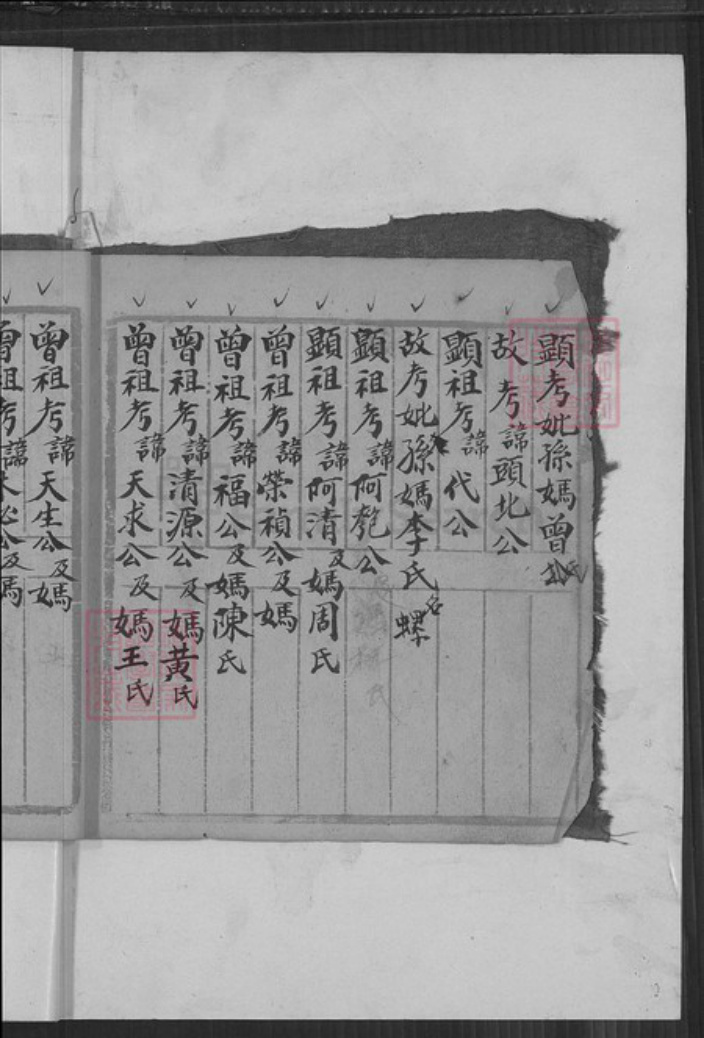 顯考妣孫媽曾氏
故考諱頭北公
顯祖考諱代公
故考妣孫媽李氏名螺
顯祖考諱阿匏公
顯祖考諱阿清及媽周氏
曾祖考諱榮禎公及媽
曾祖考諱福公及媽陳氏
曾祖考諱清源公及媽黃氏
曾祖考諱天求公及媽王氏
曾祖考諱天生公及媽
曾祖考諱公及媽